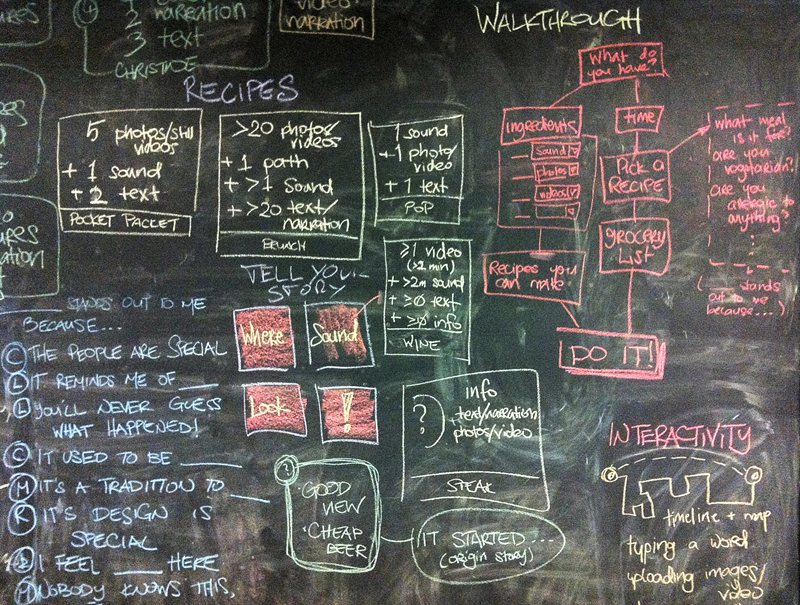 URES
4
1
2 narration
3 text
CHRISTADE
video
narration
WALKTHROUGH
RECIPES
5 photos/still
videos
+ 1 sound
+ 2 text
POCKET PACKET
>20 photos/
videos
+ 1 path
+ >1 sound
+ >20 text/
narration
BRUNCH
1 sound
+1 photo/
video
+ 1 text
POP
≥1 video
(>2 min)
+ >2m sound
+ ≥0 text
+ ≥0 info
WINE
TELL YOUR
STORY
Where
Sound
Look
!
? info
text/narration
photos/video
STEAK
?
• GOOD
VIEW
• CHEAP
BEER
IT STARTED ...
(origin story)
URES
ation
____ STANDS OUT TO ME
BECAUSE...
C THE PEOPLE ARE SPECIAL
L IT REMINDS ME OF ____
L YOU'LL NEVER GUESS
WHAT HAPPENED!
C IT USED TO BE ____
M IT'S A TRADITION TO ____
R IT'S DESIGN IS
SPECIAL
I FEEL ____ HERE
NOBODY KNOWS THIS,
What do
you have?
ingredients
Sound
photos
videos
Recipes you
can make
time
Pick a
RECIPE
grocery
list
DO IT!
what meal
is it for?
are you
vegetarian?
are you
allergic to
anything?
(____ stands
out to me
because...)
INTERACTIVITY
timeline + map
typing a word
uploading images/
video